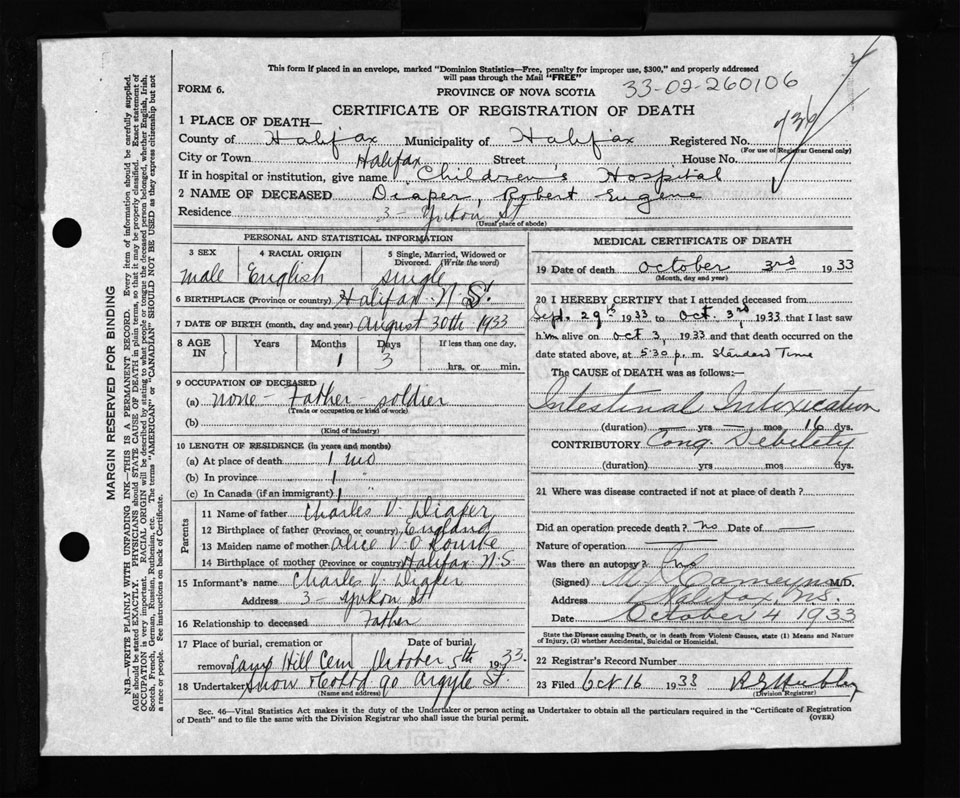 This form if placed in an envelope, marked "Dominion Statistics—Free, penalty for improper use, $300," and properly addressed
will pass through the Mail "FREE"
FORM 6.
PROVINCE OF NOVA SCOTIA
33-02-260106
CERTIFICATE OF REGISTRATION OF DEATH
1 PLACE OF DEATH—
County of Halifax Municipality of Halifax Registered No.
(For use of Registrar General only)
City or Town Halifax Street House No.
If in hospital or institution, give name Children's Hospital
2 NAME OF DECEASED Diaper, Robert Eugene
Residence 3 - Yukon St
(Usual place of abode)
PERSONAL AND STATISTICAL INFORMATION
3 SEX 4 RACIAL ORIGIN 5 Single, Married, Widowed or Divorced. (Write the word)
male English single
6 BIRTHPLACE (Province or country) Halifax N.S.
7 DATE OF BIRTH (month, day and year) August 30th 1933
8 AGE IN Years Months Days If less than one day,
1 3 hrs. or min.
9 OCCUPATION OF DECEASED
(a) none - Father soldier
(Trade or occupation or kind of work)
(b)
(Kind of industry)
10 LENGTH OF RESIDENCE (in years and months)
(a) At place of death 1 mo
(b) In province 1 "
(c) In Canada (if an immigrant) 1 "
Parents
11 Name of father Charles V. Diaper
12 Birthplace of father (Province or country) England
13 Maiden name of mother Alice V. O'Rourke
14 Birthplace of mother (Province or country) Halifax N.S
15 Informant's name Charles V. Diaper
Address 3 - Yukon St
16 Relationship to deceased Father
17 Place of burial, cremation or Date of burial,
removal Camp Hill Cem October 5th 1933.
18 Undertaker Snow & Co Ltd 90 Argyle St.
(Name and address)
MEDICAL CERTIFICATE OF DEATH
19 Date of death October 3rd 1933
(Month, day and year)
20 I HEREBY CERTIFY that I attended deceased from
Sept. 29th 1933 to Oct. 3rd 1933 that I last saw
him alive on Oct 3, 1933 and that death occurred on the
date stated above, at 5:30 p. m. Standard Time
The CAUSE of DEATH was as follows:—
Intestinal Intoxication
(duration) — yrs — mos 16 dys.
CONTRIBUTORY Cong. Debility
(duration) yrs mos dys.
21 Where was disease contracted if not at place of death?
Did an operation precede death? No Date of —
Nature of operation —
Was there an autopsy? No
(Signed) M.D.
Address Halifax, N.S.
Date October 4 1933
State the Disease causing Death, or in death from Violent Causes, state (1) Means and Nature
of Injury, (2) whether Accidental, Suicidal or Homicidal.
22 Registrar's Record Number
23 Filed Oct 16 1933
(Division Registrar)
Sec. 46—Vital Statistics Act makes it the duty of the Undertaker or person acting as Undertaker to obtain all the particulars required in the "Certificate of Registration
of Death" and to file the same with the Division Registrar who shall issue the burial permit.
(OVER)
MARGIN RESERVED FOR BINDING
N.B.—WRITE PLAINLY WITH UNFADING INK—THIS IS A PERMANENT RECORD. Every item of information should be carefully supplied.
AGE should be stated EXACTLY. PHYSICIANS should STATE CAUSE OF DEATH in plain terms, so that it may be properly classified. Exact statement of
OCCUPATION is very important. RACIAL ORIGIN will be described by stating to what people or tongue the deceased person belonged, whether English, Irish,
Scotch, French, German, Russian, Ruthenian, etc. The terms "AMERICAN" or "CANADIAN" SHOULD NOT BE USED as they express citizenship but not
a race or people. See instructions on back of Certificate.